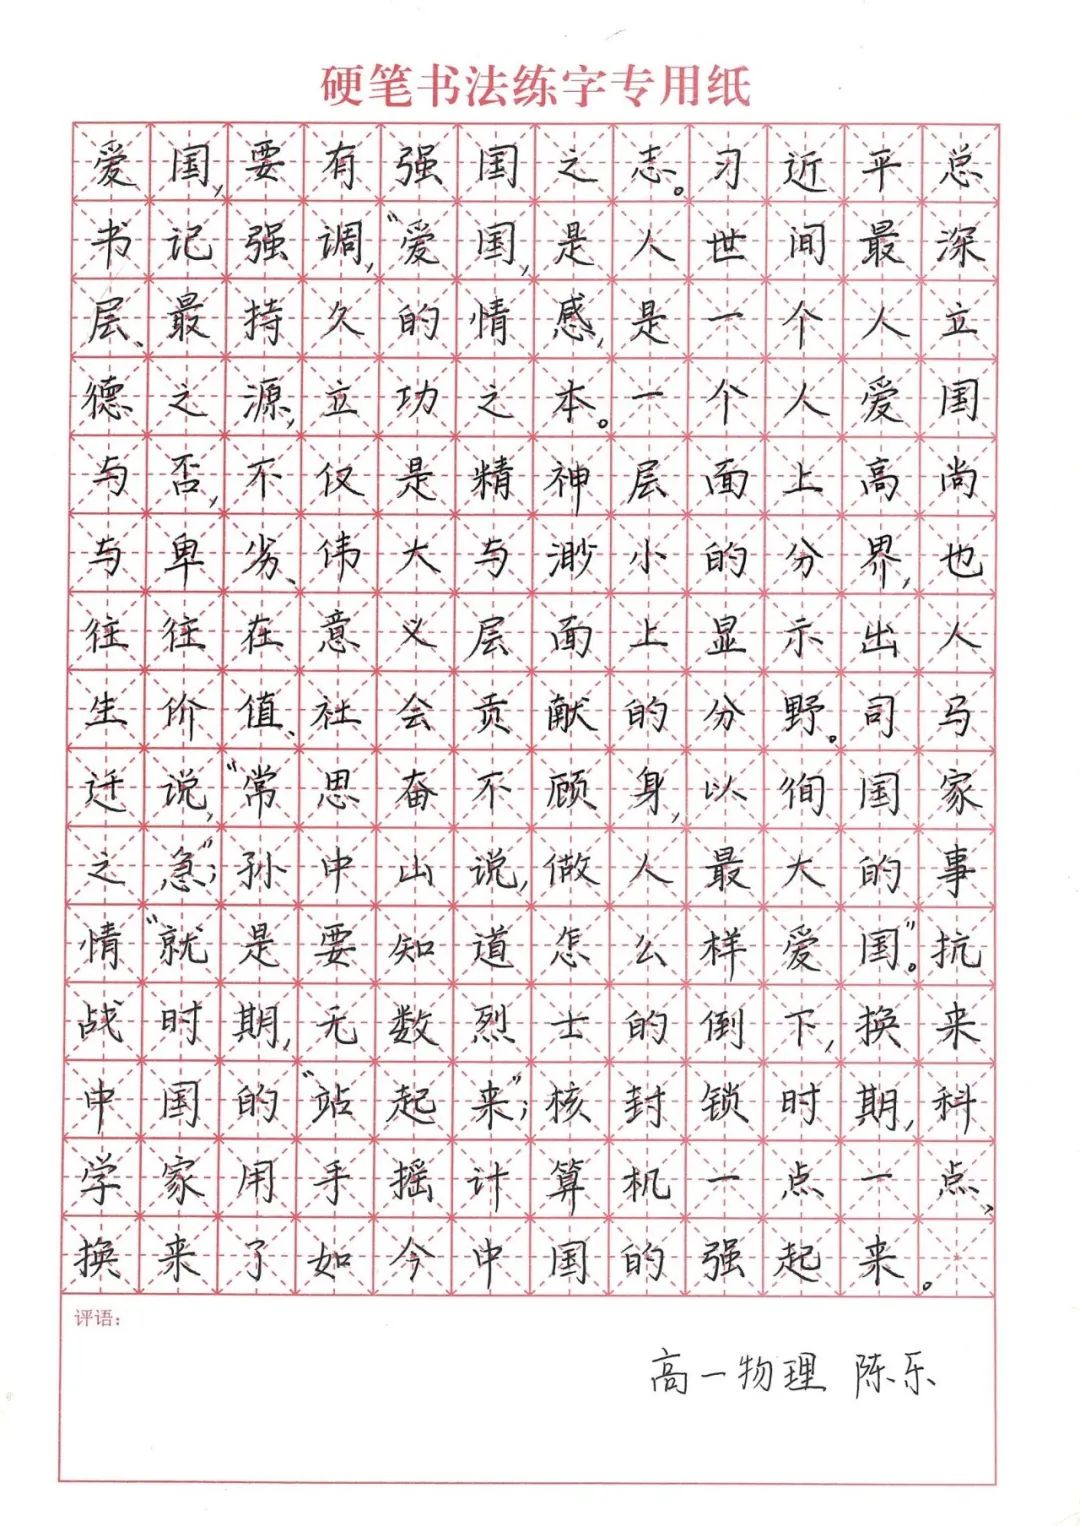 硬笔书法练字专用纸
爱国,要有强国之志。习近平总
书记强调,“爱国,是人世间最深
层、最持久的情感,是一个人立
德之源,立功之本。一个人爱国
与否,不仅是精神层面上高尚
与卑劣、伟大与渺小的分界,也
往往在意义层面上显示出人
生价值、社会贡献的分野。司马
迁说,“常思奋不顾身,以徇国家
之急”;孙中山说,做人最大的事
情“就是要知道怎么样爱国”。抗
战时期,无数烈士的倒下,换来
中国的“站起来”;核封锁时期,科
学家用手摇计算机一点一点、
换来了如今中国的强起来。
评语:
高一物理 陈乐